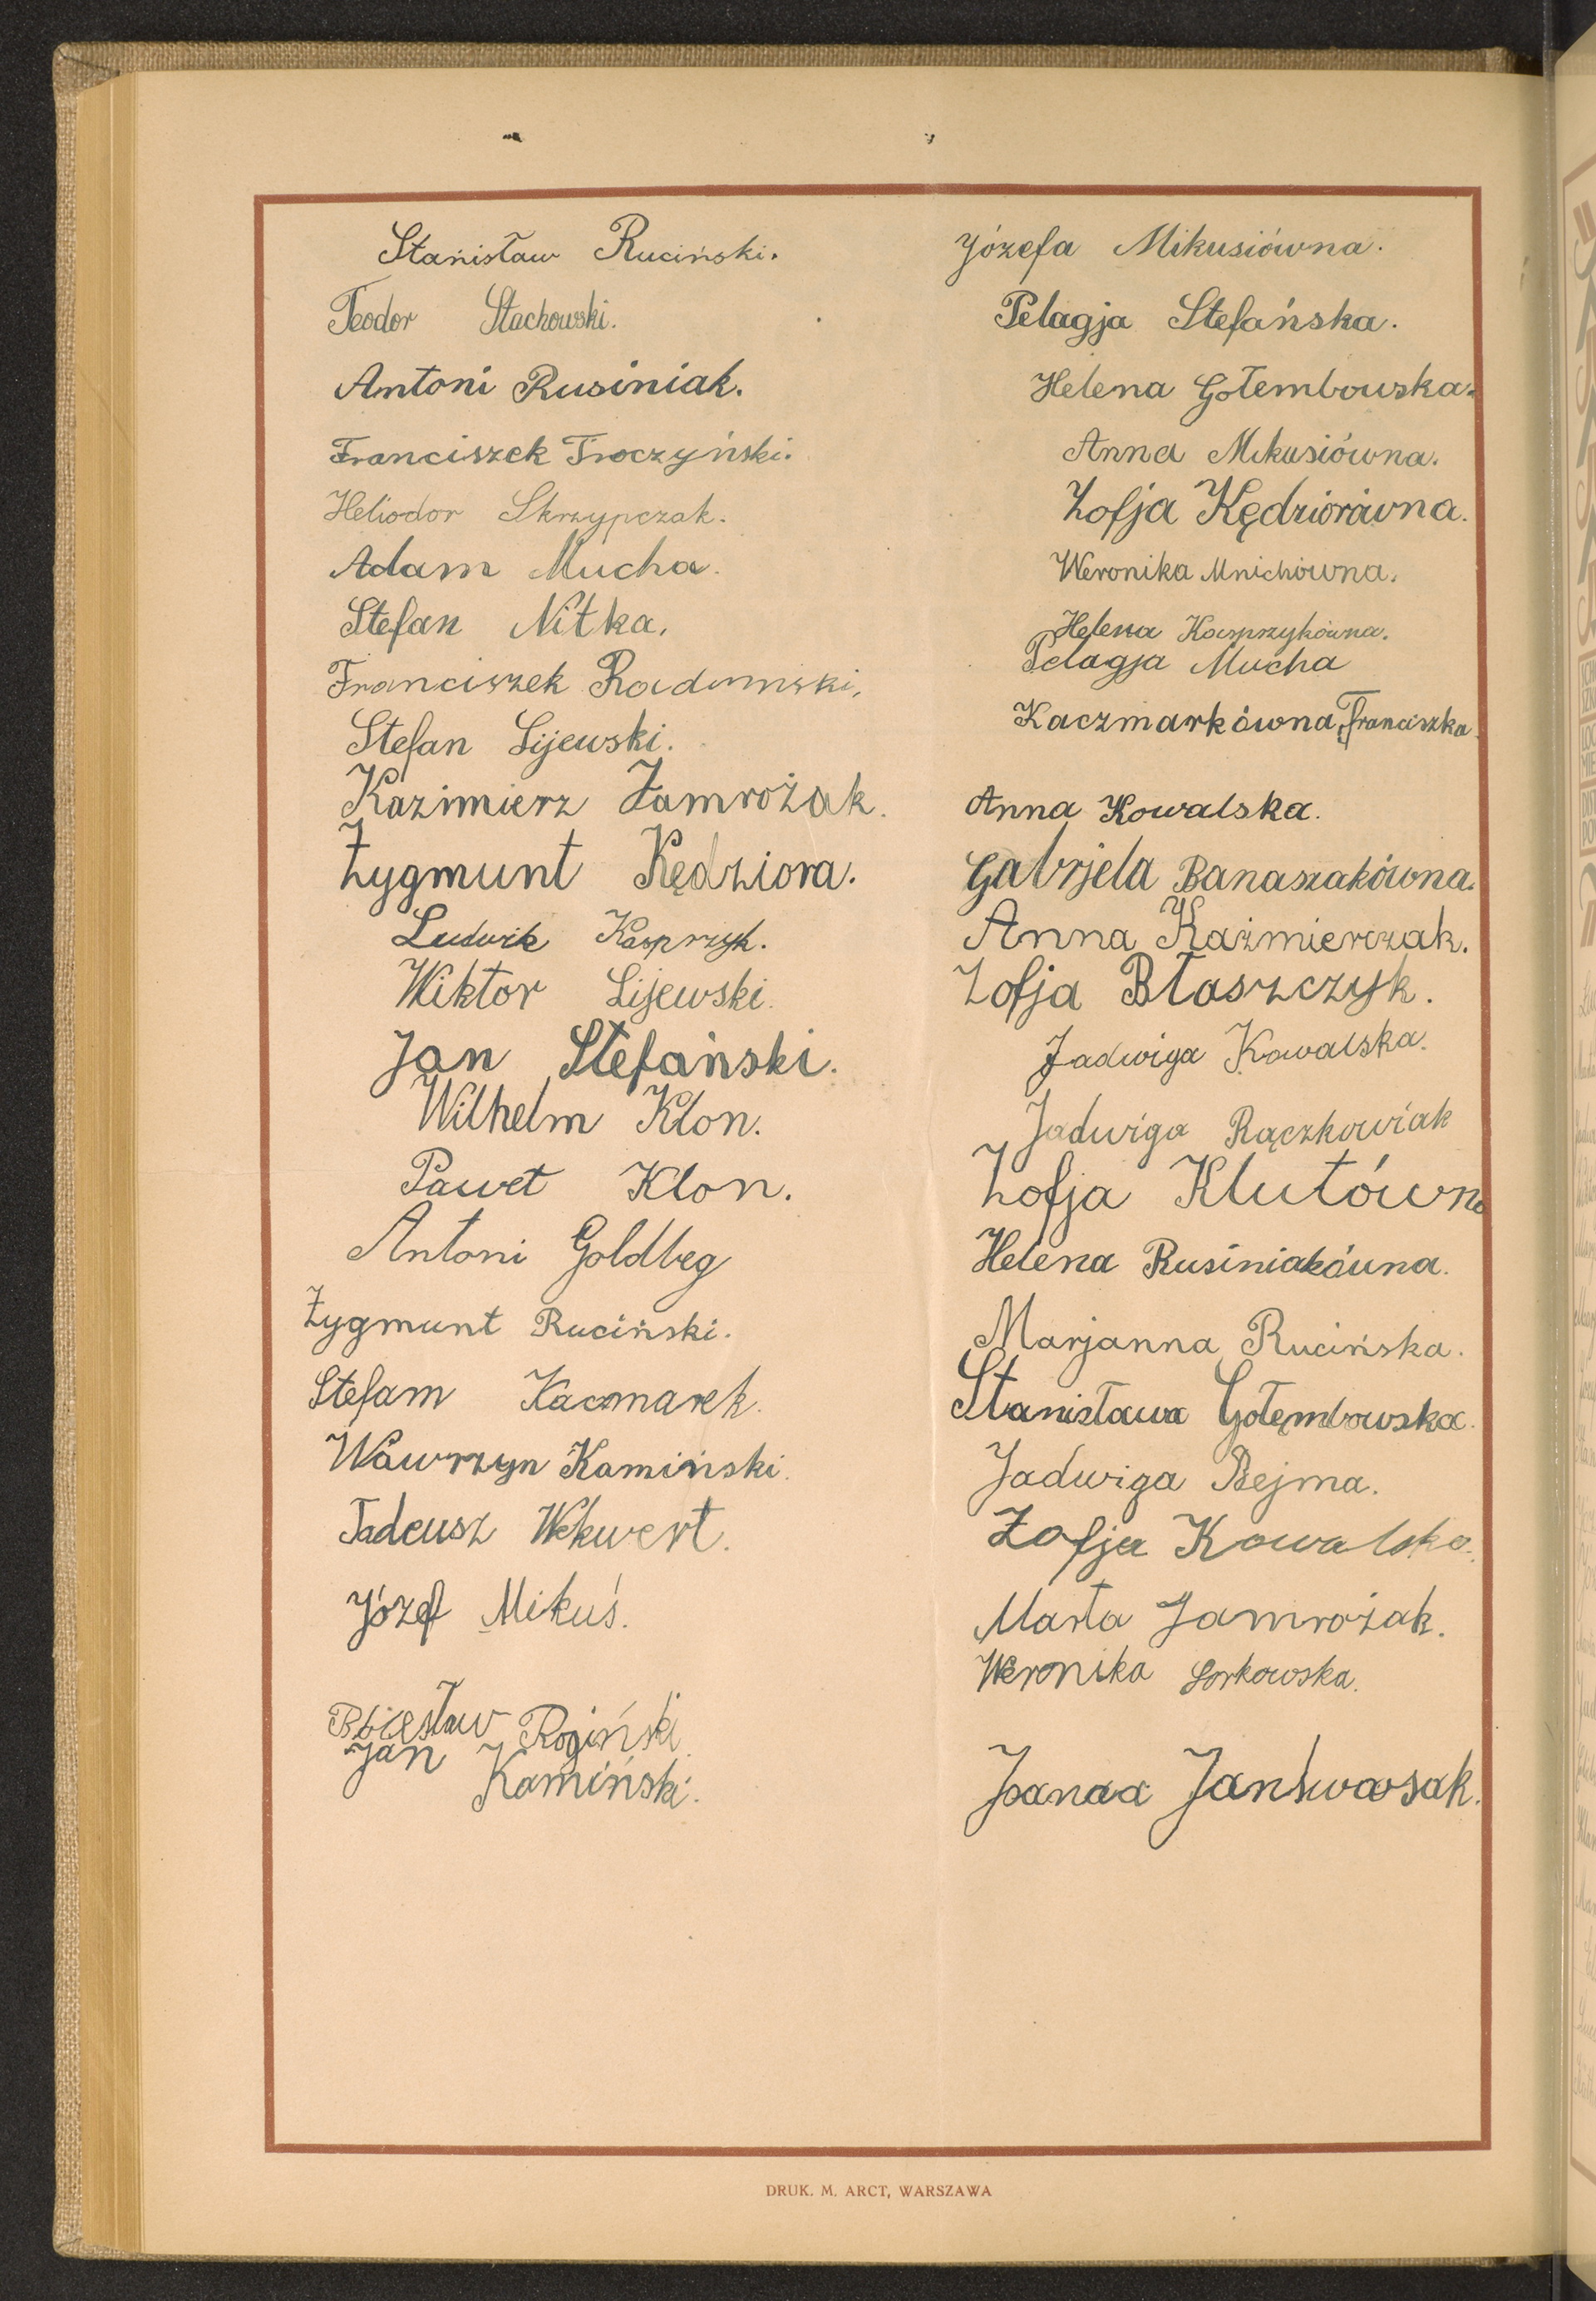 Stanisław Ruciński.
Teodor Stachowski.
Antoni Rusiniak.
Franciszek Troczyński.
Heliodor Skrzypczak.
Adam Mucha.
Stefan Nitka.
Franciszek Radomski.
Stefan Lijewski.
Kazimierz Jamrożak.
Zygmunt Kędziora.
Ludwik Kasprzyk.
Wiktor Lijewski.
Jan Stefański.
Wilhelm Klon.
Paweł Klon.
Antoni Goldbeg
Zygmunt Ruciński.
Stefam Kaczmarek.
Wawrzyn Kamiński.
Tadeusz Wekwert.
Józef Mikuś.
Rogiński.
Jan Kamiński.
Józefa Mikusiówna.
Pelagja Stefańska.
Helena Gołembowska.
Anna Mikusiówna.
Zofja Kędziorówna.
Weronika Mnichówna.
Helena Kasprzykówna.
Pelagja Mucha
Kaczmarkówna Franciszka.
Anna Kowalska.
Gabrjela Banaszakówna.
Anna Kaźmierczak.
Zofja Błaszczyk.
Jadwiga Kowalska.
Jadwiga Rączkowiak
Zofja Klutówna
Helena Rusiniakówna.
Marjanna Rucińska.
Stanisława Gołęmbowska.
Jadwiga Bejma.
Zofja Kowalska.
Marta Jamrożak.
Weronika Borkowska.
DRUK. M. ARCT, WARSZAWA